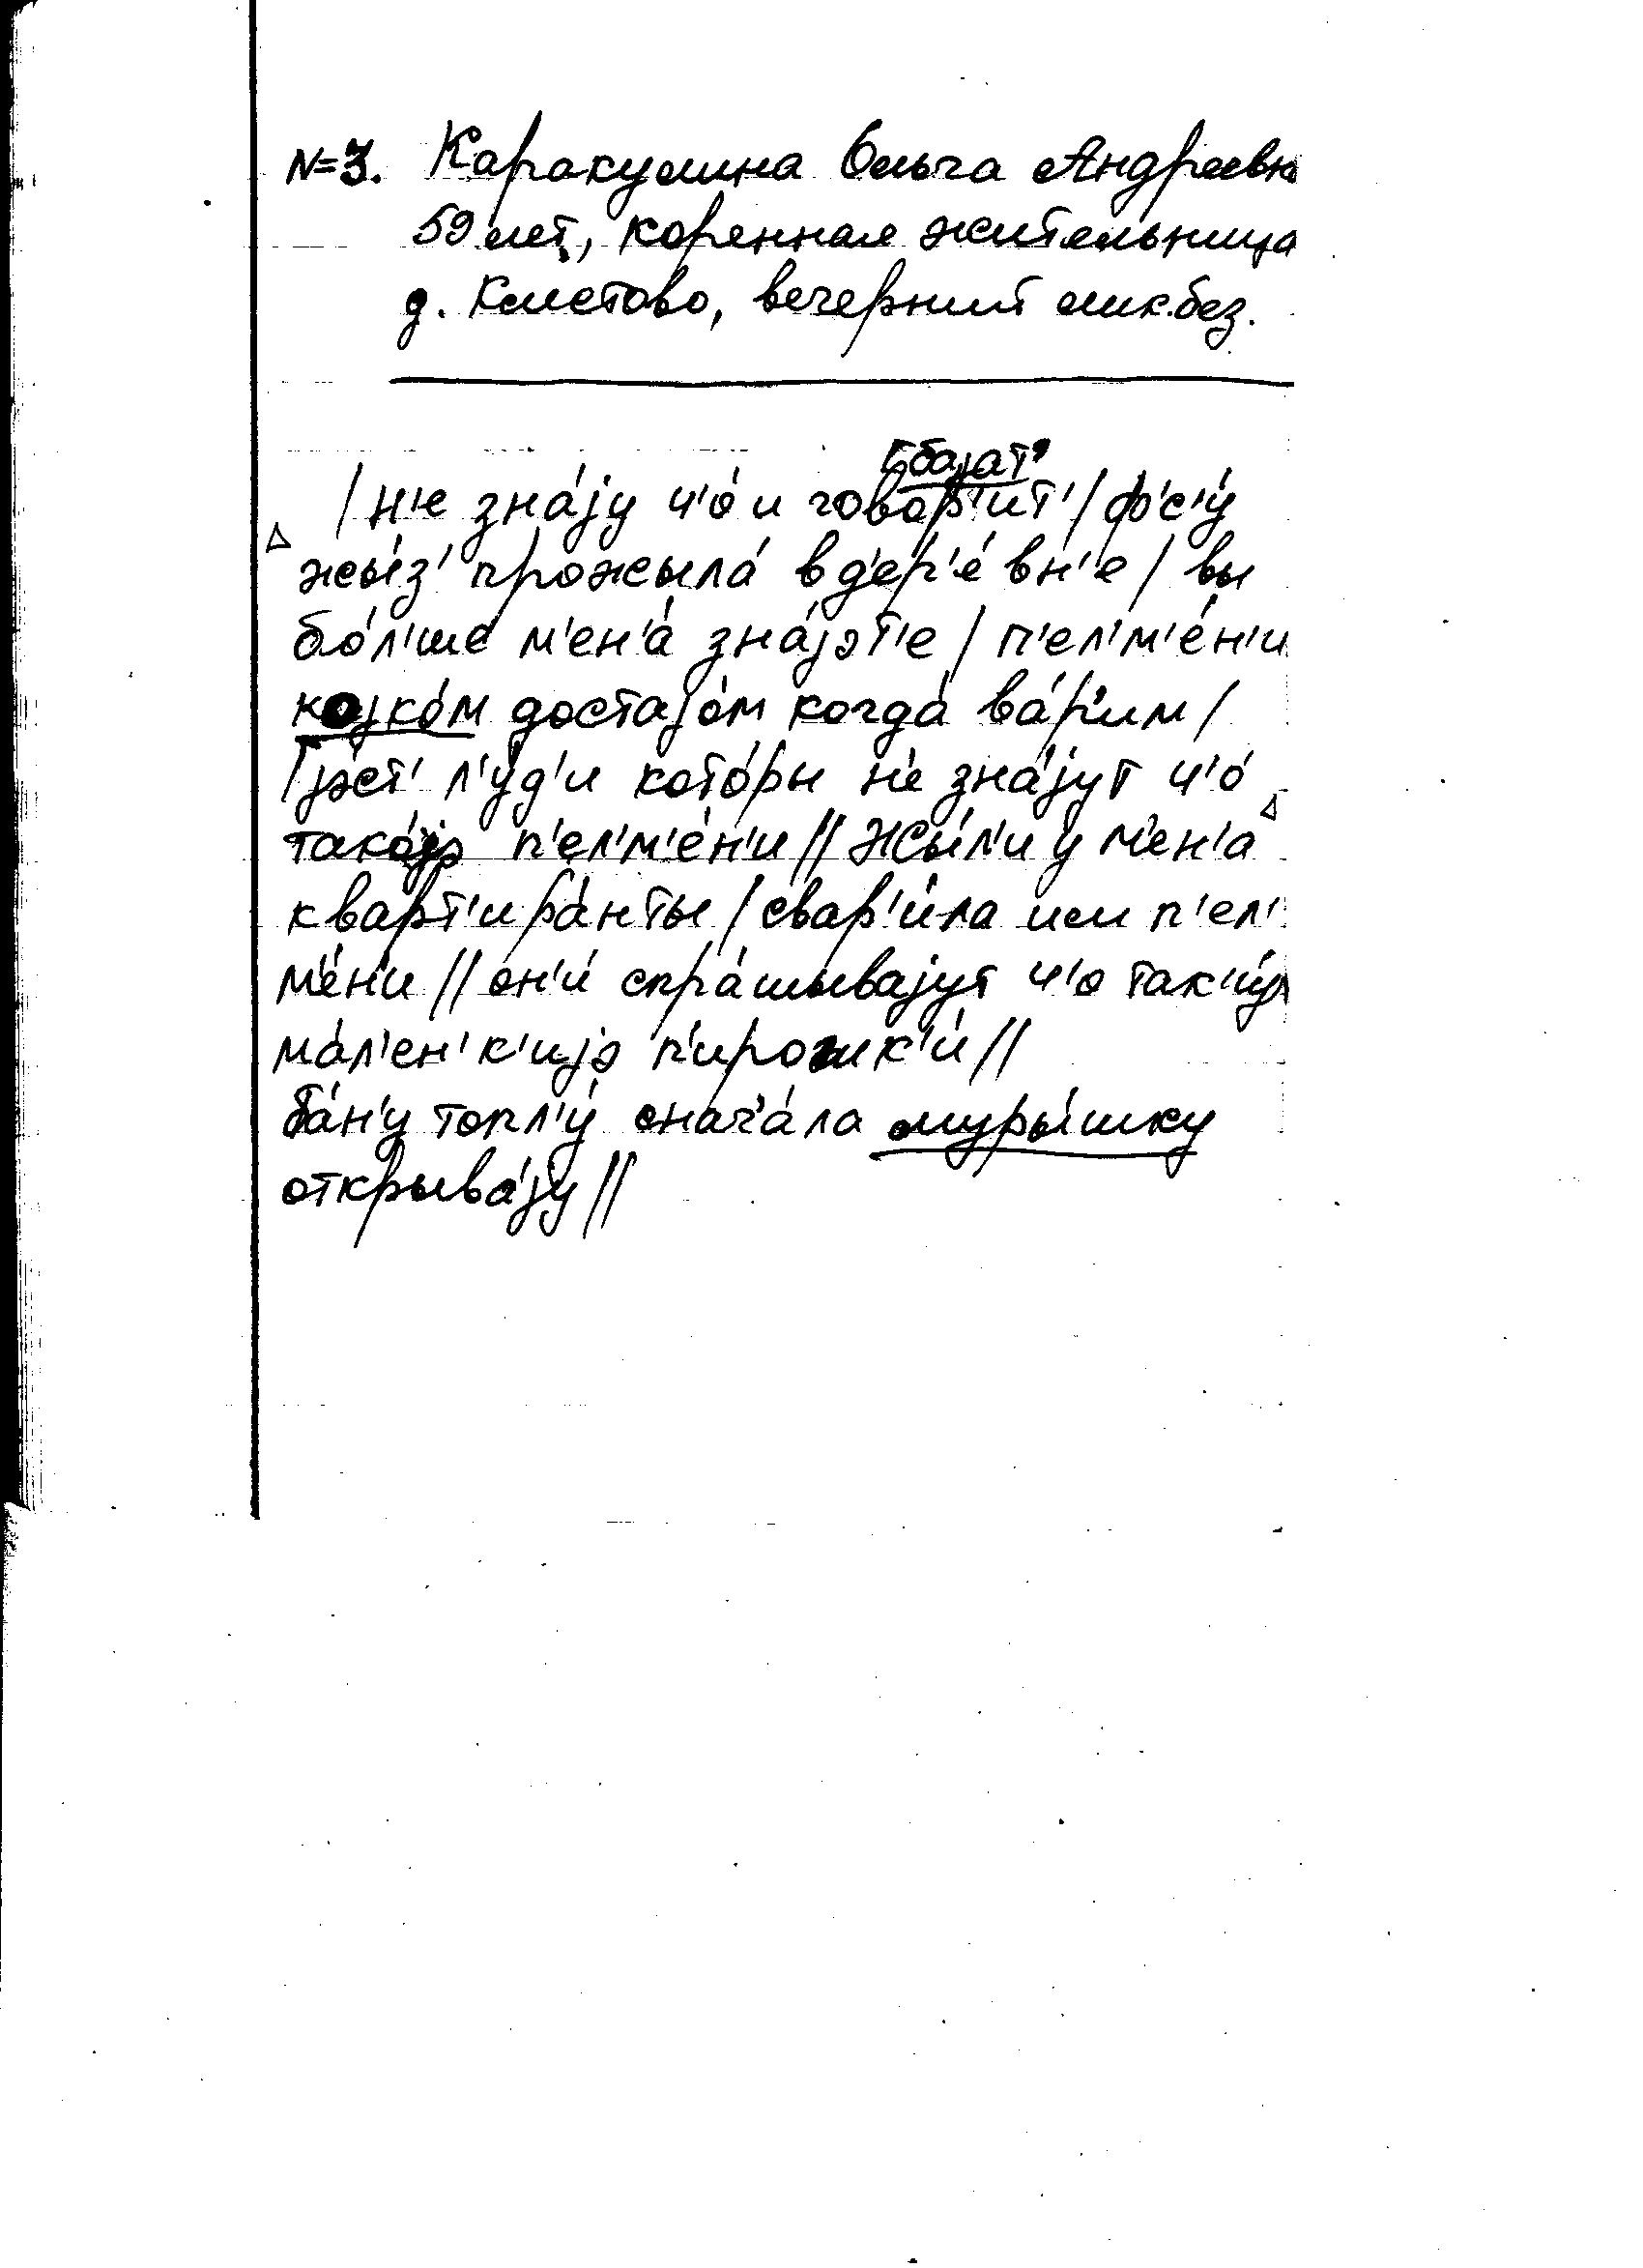 №3. Каракулина Ольга Андреевна
59 лет, коренная жительница
д. Клистово, вечерний ликбез.
[бајат'
/н'е зна́ју ч'о́ и говор'ит'/ф'с'у́
жы́з' прожыла́ в д'ер'е́вн'е/ вы
бо́л'ше м'ен'а́ зна́јэт'е/ п'ел'м'е́н'и
којко́м достајо́м когда́ ва́р'им/
/јэст' л'у́д'и кото́ры н'е зна́јут ч'о́
тако́јэ п'ел'м'е́н'и// Жы́л'и у м'ен'а
кварт'ира́нты/свар'и́ла им п'ел'
м'е́н'и// он'и́ спра́шывајут ч'о так'и́јэ
ма́л'ен'к'ијэ п'ирошк'и́//
ба́н'у топл'у́ снач'а́ла муры́шку
открыва́ју//